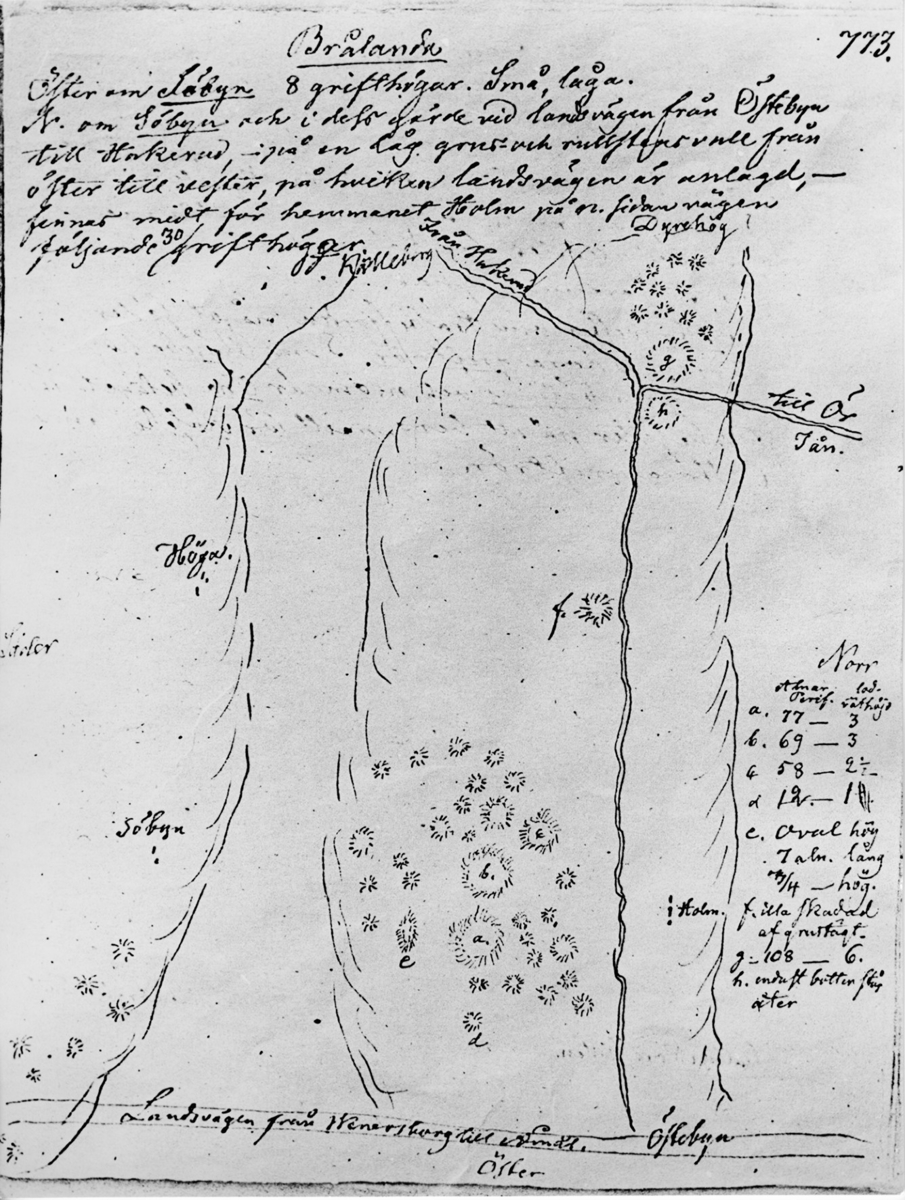 Brålanda
773.
Öster om Söbyn 8 grifthögar. Små, låga.
N. om Söbyn och i dess gärde vid landsvägen från Östebyn
till Hakerud, – på en låg grus och rullstensvall från
öster till vester, på hvilken landsvägen är anlagd, –
finnes midt för hemmanet Holm på n. sidan vägen
följande 30 grifthögar
Dyrehög
från Hakerud
till Ör
Jån.
g
h
Höga.
f.
Norr
Alnar Perif. lodräthöjd
a. 77 — 3
b. 69 — 3
c 58 — 2½
d 12 — 1
e. Oval hög
7 aln. lång
/4 — hög.
Söbyn
b.
c
Holm.
f. illa skadad
af grustägt.
a.
e
g = 108 — 6.
h. endast botten
åter
d
Landsvägen från Wenersborg till
Östebyn
Öster